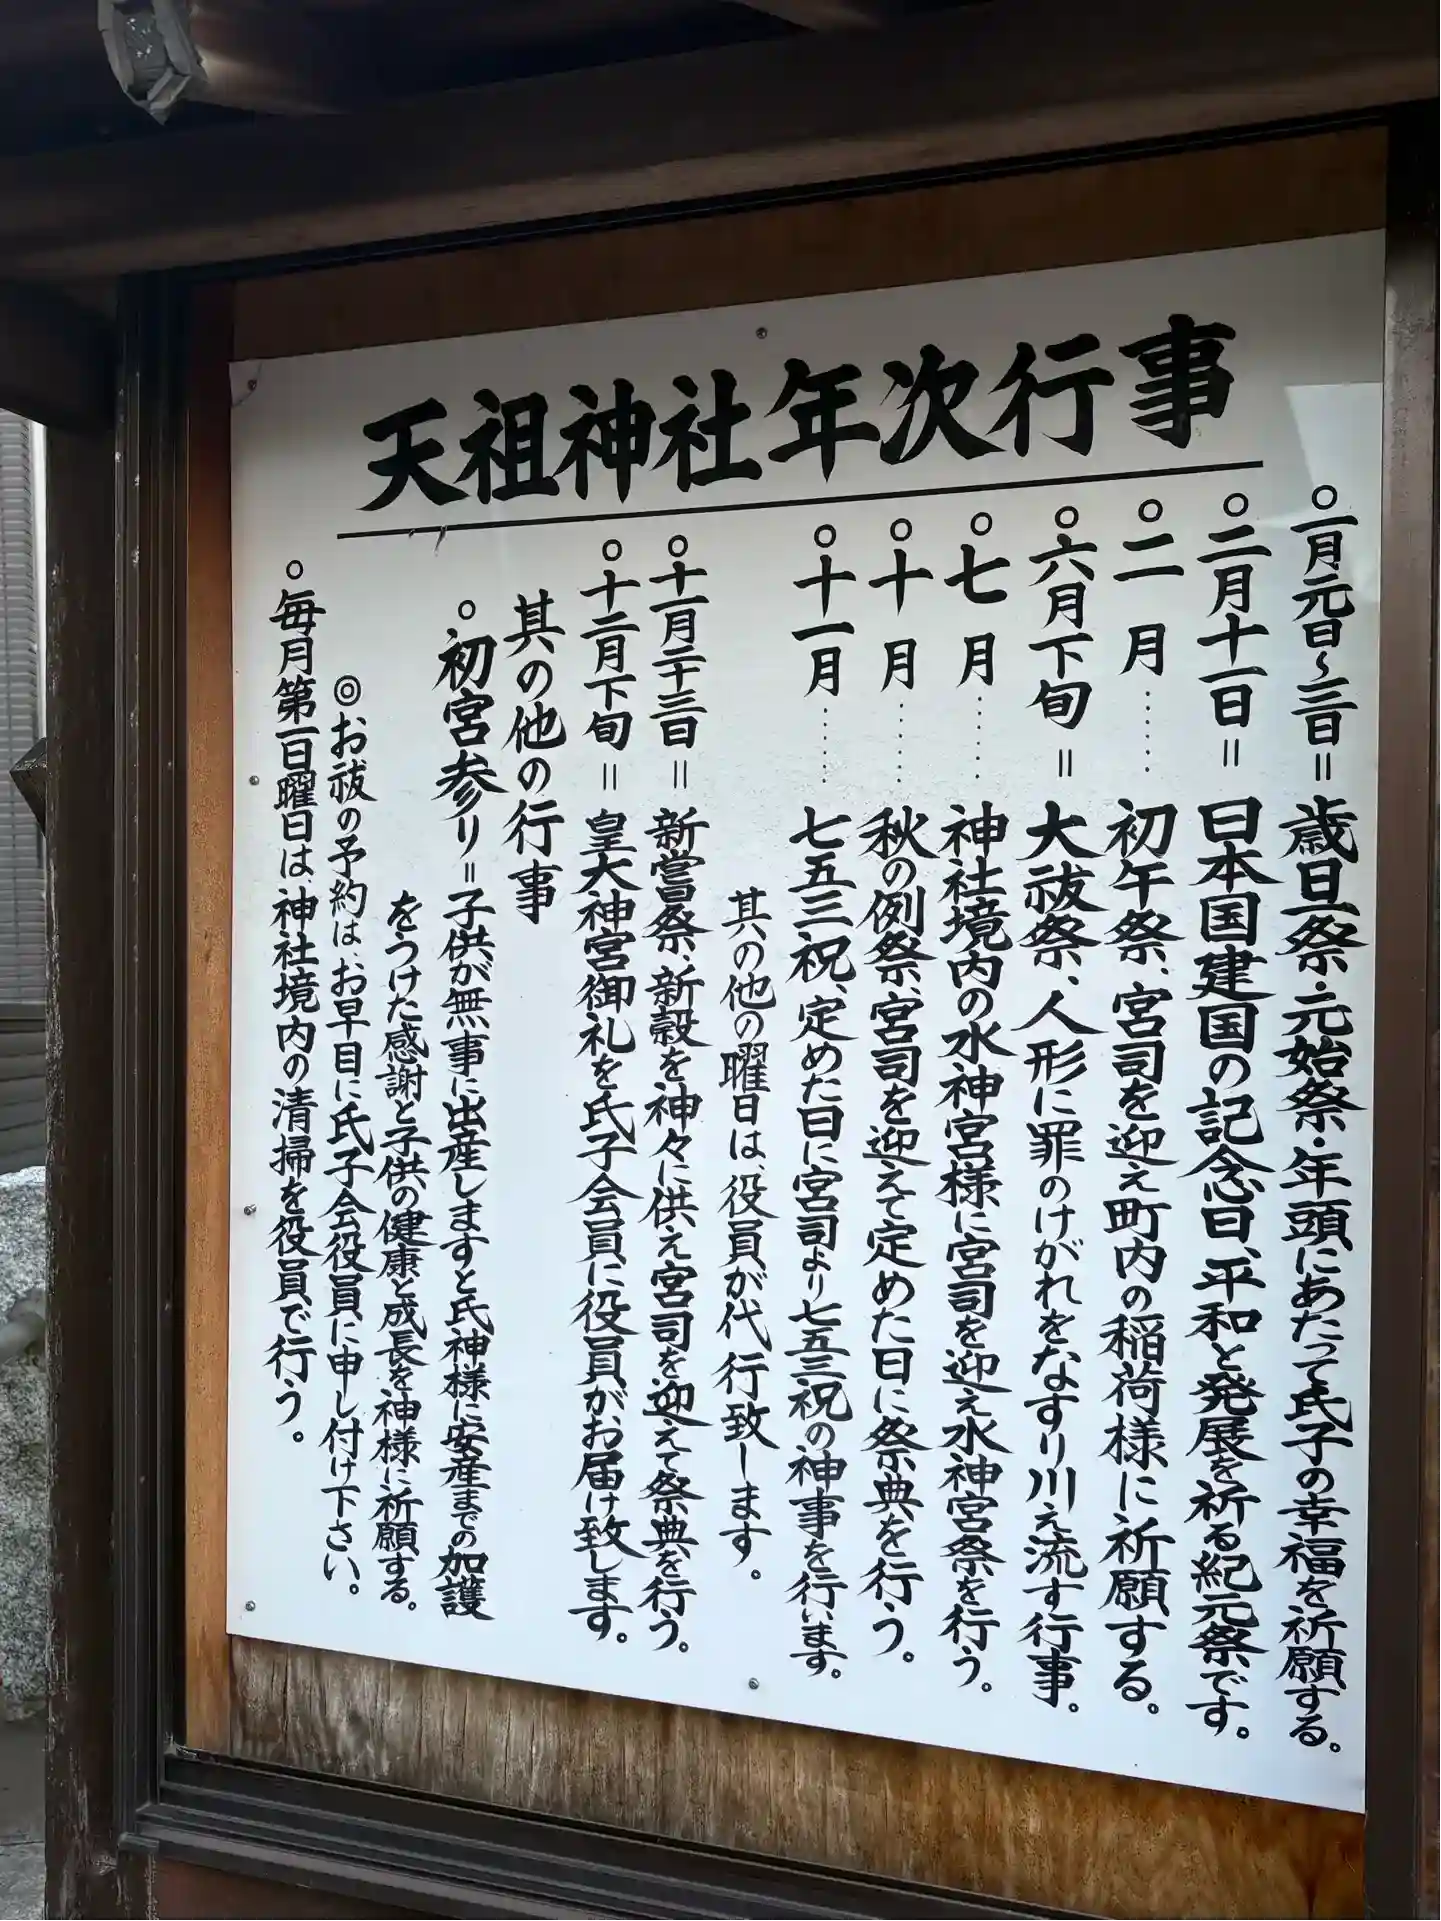 天祖神社年次行事
○一月元旦〜三日＝歳旦祭・元始祭・年頭にあたって氏子の幸福を祈願する。
○二月十一日＝日本国建国の記念日、平和と発展を祈る紀元祭です。
○二月……初午祭、宮司を迎え町内の稲荷様に祈願する。
○六月下旬＝大祓祭、人形に罪のけがれをなすり川え流す行事。
○七月……神社境内の水神宮様に宮司を迎え水神宮祭を行う。
○十月……秋の例祭、宮司を迎えて定めた日に祭典を行う。
○十一月……七五三祝、定めた日に宮司より七五三祝の神事を行います。
其の他の曜日は、役員が代行致します。
○十一月二十三日＝新嘗祭、新穀を神々に供え宮司を迎えて祭典を行う。
○十二月下旬＝皇大神宮御礼を氏子会員に役員がお届け致します。
其の他の行事
○初宮参り＝子供が無事に出産しますと氏神様に安産までの加護
をうけた感謝と子供の健康と成長を神様に祈願する。
◎お祓の予約は、お早目に氏子会役員に申し付け下さい。
○毎月第一日曜日は、神社境内の清掃を役員で行う。